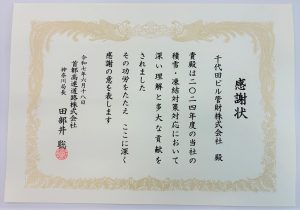 感謝状
千代田ビル管財株式会社 殿
貴殿は二〇二四年度の当社の
積雪・凍結対策対応において
深い理解と多大な貢献を
されました
その功労をたたえ ここに深く
感謝の意を表します
令和七年六月十八日
首都高速道路株式会社
神奈川局長
田部井 聡